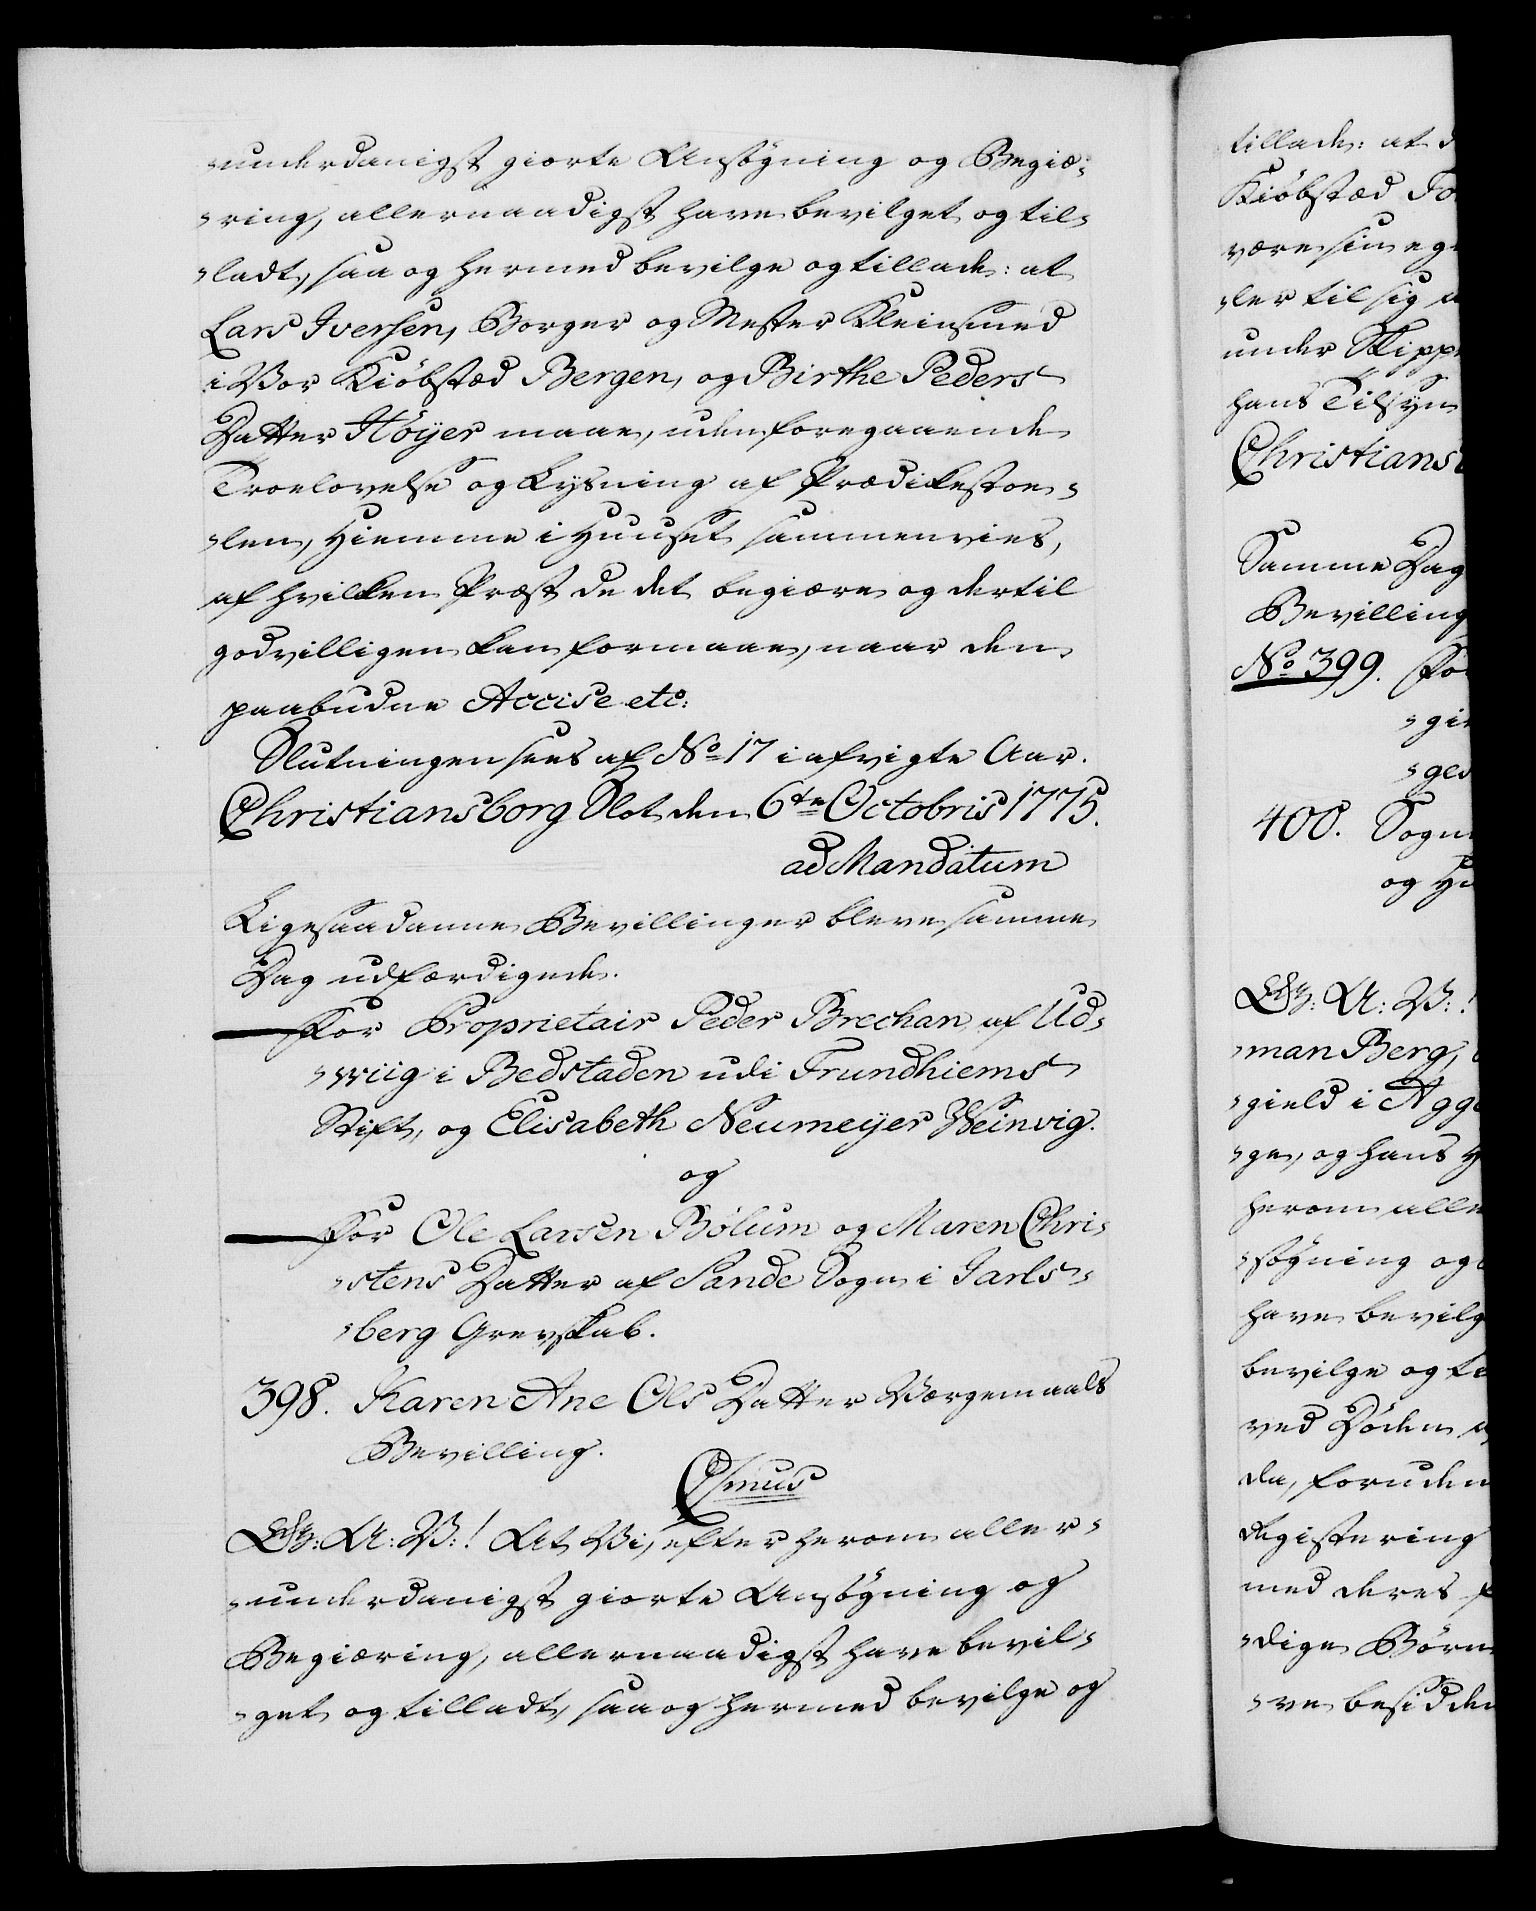 underdanigst giorte Ansøgning og Begiæ-
ring, allernaadigst have bevilget og til-
ladt, saa og hermed bevilge og tillade: at
Lars Iversen, Borger og Mester Kleinsmed
i Vor Kiøbstæd Bergen, og Birthe Peders
Datter Høyer maae, uden foregaaende
Troelovelse og Lysning af Prædikestoe-
len, hiemme i Huuset sammenvies,
af hvilken Præst de det begiære og dertil
godvilligen kan formaae, naar den
paabudne Accise etc:
Slutningen sees af No 17 i afvigte Aar.
Christiansborg Slot den 6te Octobris 1775.
ad Mandatum
Ligesaadanne Bevillinger bleve samme
Dag udfærdigede.
For Proprietair Peder Brechan af Ud-
wiig i Bedstaden udi Trundhiems
Stift, og Elisabeth Neumeyer Weinvig.
og
For Ole Larsen Bølum og Maren Chri-
stens Datter af Sande Sogn i Jarls-
berg Grevskab.
398. Karen Ane Ols Datter Værgemaals
Bevilling.
Csmus
G: A: V: ! At Vi, efter herom aller-
underdanigst giorte Ansøgning og
Begiæring, allernaadigst have bevil-
get og tilladt, saa og hermed bevilge og
tillade: at
Kiøbstæd
være sin
ler til sig
under
hans Tilsyn
Christians
Samme Dag
Bevilling
No 399.
400. Sogne
og
man Berg,
gield i Agge
ge, og hans
herom alle
søgning og
have bevilg
bevilge og
ved Døden
da, foruden
Registering
med deres
dige Børn
ve besidde